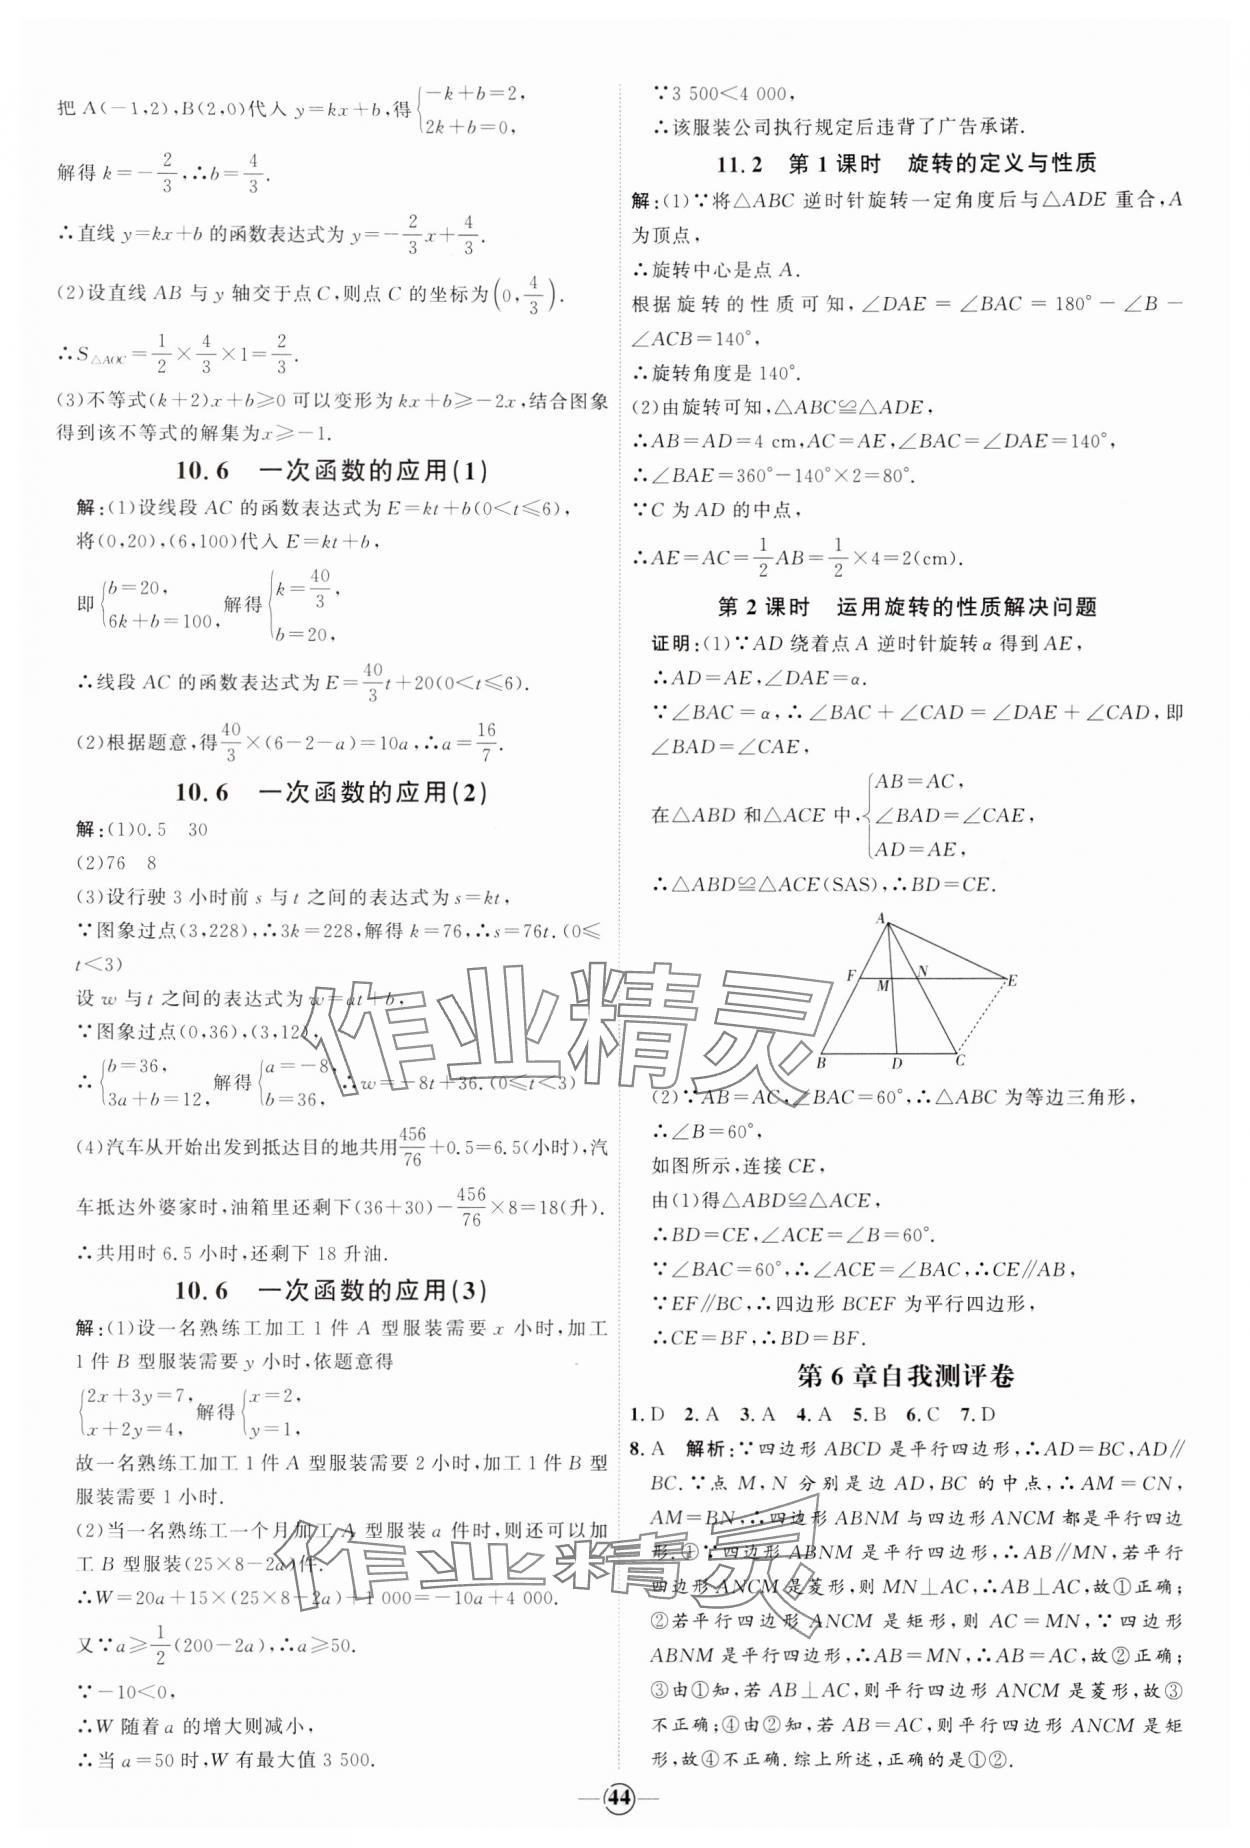 把 A(－1,2),B(2,0)代入 y＝kx＋b,得{－k＋b＝2, 2k＋b＝0,
解得 k＝－2/3,∴b＝4/3.
∴直线 y＝kx＋b 的函数表达式为 y＝－2/3x＋4/3.
(2)设直线 AB 与 y 轴交于点 C,则点 C 的坐标为(0,4/3).
∴S△AOC＝1/2×4/3×1＝2/3.
(3)不等式(k＋2)x＋b≥0 可以变形为 kx＋b≥－2x,结合图象
得到该不等式的解集为x≥－1.
10.6 一次函数的应用(1)
解:(1)设线段 AC 的函数表达式为 E＝kt＋b(0<t≤6),
将(0,20),(6,100)代入 E＝kt＋b,
即{b＝20, 6k＋b＝100, 解得{k＝40/3, b＝20,
∴线段 AC 的函数表达式为 E＝40/3t＋20(0<t≤6).
(2)根据题意,得40/3×(6－2－a)＝10a,∴a＝16/7.
10.6 一次函数的应用(2)
解:(1)0.5 30
(2)76 8
(3)设行驶 3 小时前 s 与 t 之间的表达式为 s＝kt,
∵图象过点(3,228),∴3k＝228,解得 k＝76,∴s＝76t.(0≤
t<3)
设 w 与 t 之间的表达式为 w＝at＋b,
∵图象过点(0,36),(3,12),
∴{b＝36, 3a＋b＝12, 解得{a＝－8, b＝36, ∴w＝－8t＋36.(0≤t<3)
(4)汽车从开始出发到抵达目的地共用456/76＋0.5＝6.5(小时),汽
车抵达外婆家时,油箱里还剩下(36＋30)－456/76×8＝18(升).
∴共用时 6.5 小时,还剩下 18 升油.
10.6 一次函数的应用(3)
解:(1)设一名熟练工加工 1 件 A 型服装需要 x 小时,加工
1 件 B 型服装需要 y 小时,依题意得
{2x＋3y＝7, x＋2y＝4, 解得{x＝2, y＝1,
故一名熟练工加工 1 件 A 型服装需要 2 小时,加工 1 件 B 型
服装需要 1 小时.
(2)当一名熟练工一个月加工 A 型服装 a 件时,则还可以加
工 B 型服装(25×8－2a)件.
∴W＝20a＋15×(25×8－2a)＋1 000＝－10a＋4 000.
又∵a≥1/2(200－2a),∴a≥50.
∵－10<0,
∴W 随着 a 的增大则减小,
∴当 a＝50 时,W 有最大值 3 500.
∵3 500<4 000,
∴该服装公司执行规定后违背了广告承诺.
11.2 第 1 课时 旋转的定义与性质
解:(1)∵将△ABC 逆时针旋转一定角度后与△ADE 重合,A
为顶点,
∴旋转中心是点 A.
根据旋转的性质可知,∠DAE＝∠BAC＝180°－∠B－
∠ACB＝140°,
∴旋转角度是 140°.
(2)由旋转可知,△ABC≌△ADE,
∴AB＝AD＝4 cm,AC＝AE,∠BAC＝∠DAE＝140°,
∴∠BAE＝360°－140°×2＝80°.
∵C 为 AD 的中点,
∴AE＝AC＝1/2AB＝1/2×4＝2(cm).
第 2 课时 运用旋转的性质解决问题
证明:(1)∵AD 绕着点 A 逆时针旋转 α 得到 AE,
∴AD＝AE,∠DAE＝α.
∵∠BAC＝α,∴∠BAC＋∠CAD＝∠DAE＋∠CAD,即
∠BAD＝∠CAE,
在△ABD 和△ACE 中,{AB＝AC, ∠BAD＝∠CAE, AD＝AE,
∴△ABD≌△ACE(SAS),∴BD＝CE.
A
F N E
M
B D C
(2)∵AB＝AC,∠BAC＝60°,∴△ABC 为等边三角形,
∴∠B＝60°,
如图所示,连接 CE,
由(1)得△ABD≌△ACE,
∴BD＝CE,∠ACE＝∠B＝60°.
∵∠BAC＝60°,∴∠ACE＝∠BAC,∴CE∥AB,
∵EF∥BC,∴四边形 BCEF 为平行四边形,
∴CE＝BF,∴BD＝BF.
第 6 章自我测评卷
1. D 2. A 3. A 4. A 5. B 6. C 7. D
8. A 解析:∵四边形 ABCD 是平行四边形,∴AD＝BC,AD∥
BC.∵点 M,N 分别是边 AD,BC 的中点,∴AM＝CN,
AM＝BN,∴四边形 ABNM 与四边形 ANCM 都是平行四边
形.①∵四边形 ABNM 是平行四边形,∴AB∥MN,若平行
四边形 ANCM 是菱形,则 MN⊥AC,∴AB⊥AC,故①正确;
②若平行四边形 ANCM 是矩形,则 AC＝MN,∵四边形
ABNM 是平行四边形,∴AB＝MN,∴AB＝AC,故②正确;
③由①知,若 AB⊥AC,则平行四边形 ANCM 是菱形,故③
不正确;④由②知,若 AB＝AC,则平行四边形 ANCM 是矩
形,故④不正确.综上所述,正确的是①②.
44
作业精灵
作业精灵